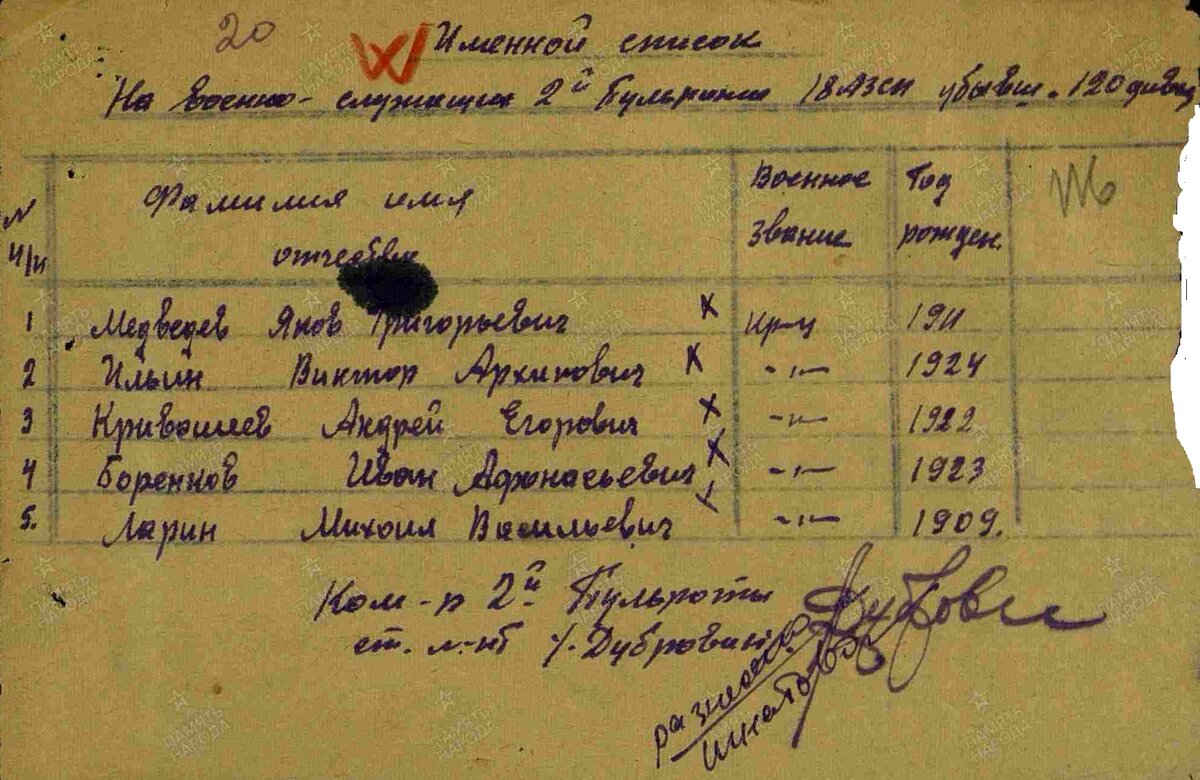 20
Именной список
На военно-служащих 2й Пульроты 18 АЗСП убывш. 120 дивиз
N п/п Фамилия имя отчество Военное звание Год рожден.
1 Медведев Яков Григорьевич х Кр-ц 1911
2 Ильин Виктор Архипович х -"- 1924
3 Кривошеев Андрей Егорович х -"- 1922
4 Боренков Иван Афонасьевич х -"- 1923
5. Ларин Михаил Васильевич х -"- 1909.
Ком-р 2й Пульроты
ст. л-нт /Дубровин/